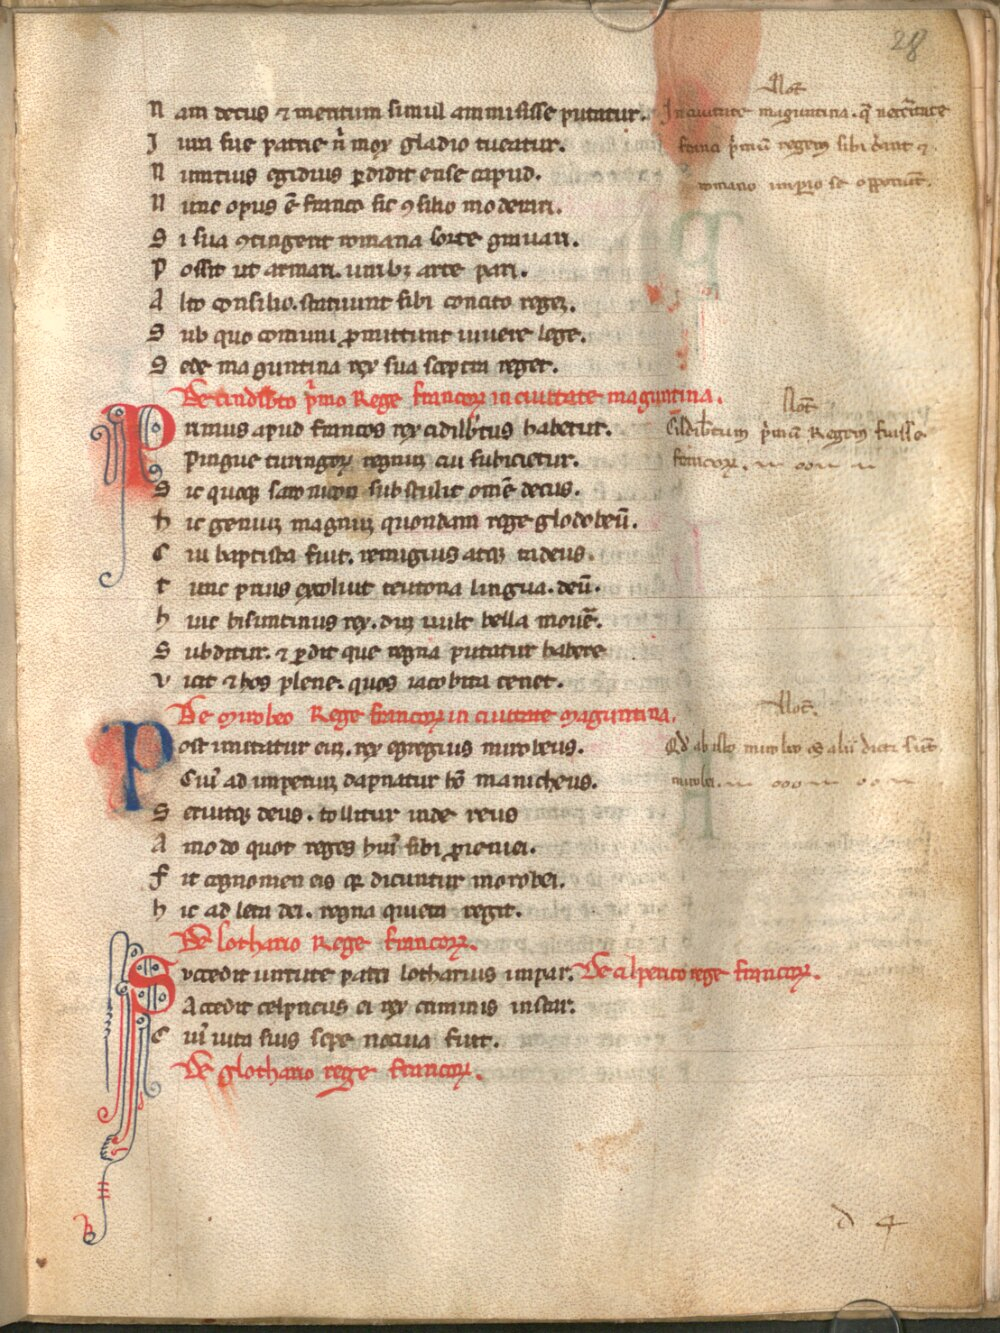 28
N am decus ⁊ meritum simul ammisisse putatur.
I ura sue patrie n̄ mox gladio tueatur.
N untius egidius ꝑdidit ense caput.
N unc opus ē franco sic ꝯsilio moderari.
S i sua ꝯtingerit romana sorte grauari.
P ossit ut armari. uiribꝫ arte pari.
A lto consilio. statuunt sibi concito regeꝫ.
S ub quo comuni ꝓmittunt uiuere lege.
S ede maguntina rex sua sceptra reget.
Not̄
In ciuitate maguntina. qͥ
franci p̄mū regem sibi creant ⁊
romano imperio se opponunt.
De p̄mo Rege francoꝝ in ciuitate maguntina.
P rimus apud francos rex cidilb̄tus habetur.
Pingue turingoꝝ regnuꝫ cui subicietur.
S ic quoqꝫ saxonicon substulit omē decus.
h ic genuiꝫ magnuꝫ quondam rege glodoueū.
C ui baptista fuit. remigius atqꝫ tadeus.
t unc prius excoluit teutona lingua. deū.
h uic bisuntinus rex. dum uult bella mouē.
S ubditur. ⁊ ꝑdit que regna putatur habere
V icit ⁊ hos plene. quos iacobita tenet.
Not̄
Cildib̄tum p̄mū Regem fuisse
francoꝝ.
De meroueo Rege francoꝝ in ciuitate maguntina.
P ost imitatur eum. rex egregius miroueus.
Cuiꝰ ad imperiuꝫ dapnatur manicheus.
S eruitqꝫ deus. tollitur inde reus
A modo quot reges huiꝰ sibi
F it cognomen eis qꝛ dicuntur morobei.
h ic ad leta dei. regna quietа regit.
Not̄.
Qd ab isto miroueo oēs alii dicti sūt
mirobei.
De lothario Rege francoꝝ.
S uccedit uirtute patri lotharius impar. De cilperico rege francoꝝ.
Accedit celpricus ei rex criminis instar.
C uiꝰ uita suis sepe nociua fuit.
De glothario rege francoꝝ.
d 4